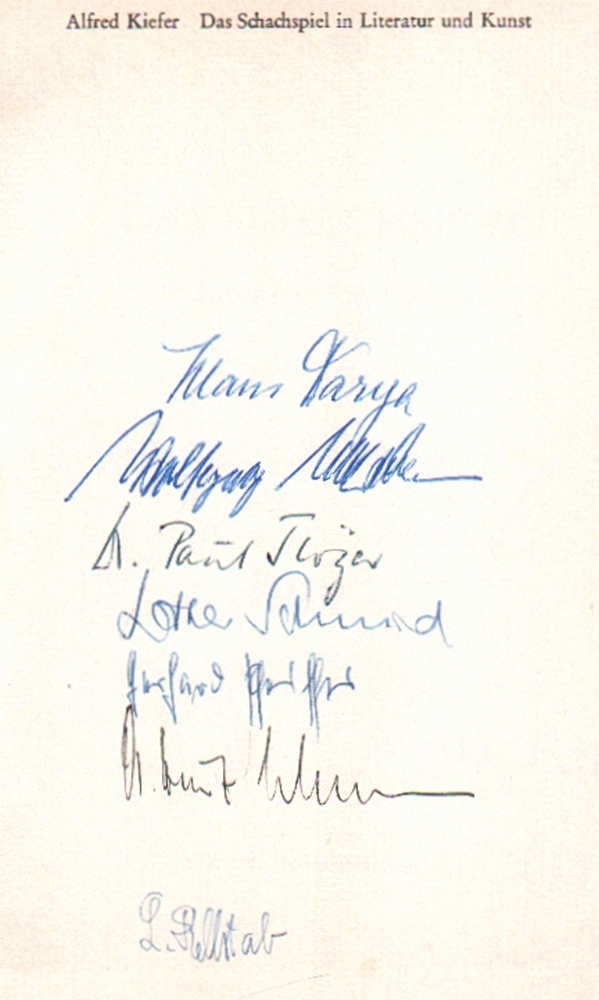 Alfred Kiefer Das Schachspiel in Literatur und Kunst
Klaus Darga
Wolfgang
Dr. Paul Tröger
Lothar Schmid
Gerhard Pfeiffer
L. Rellstab